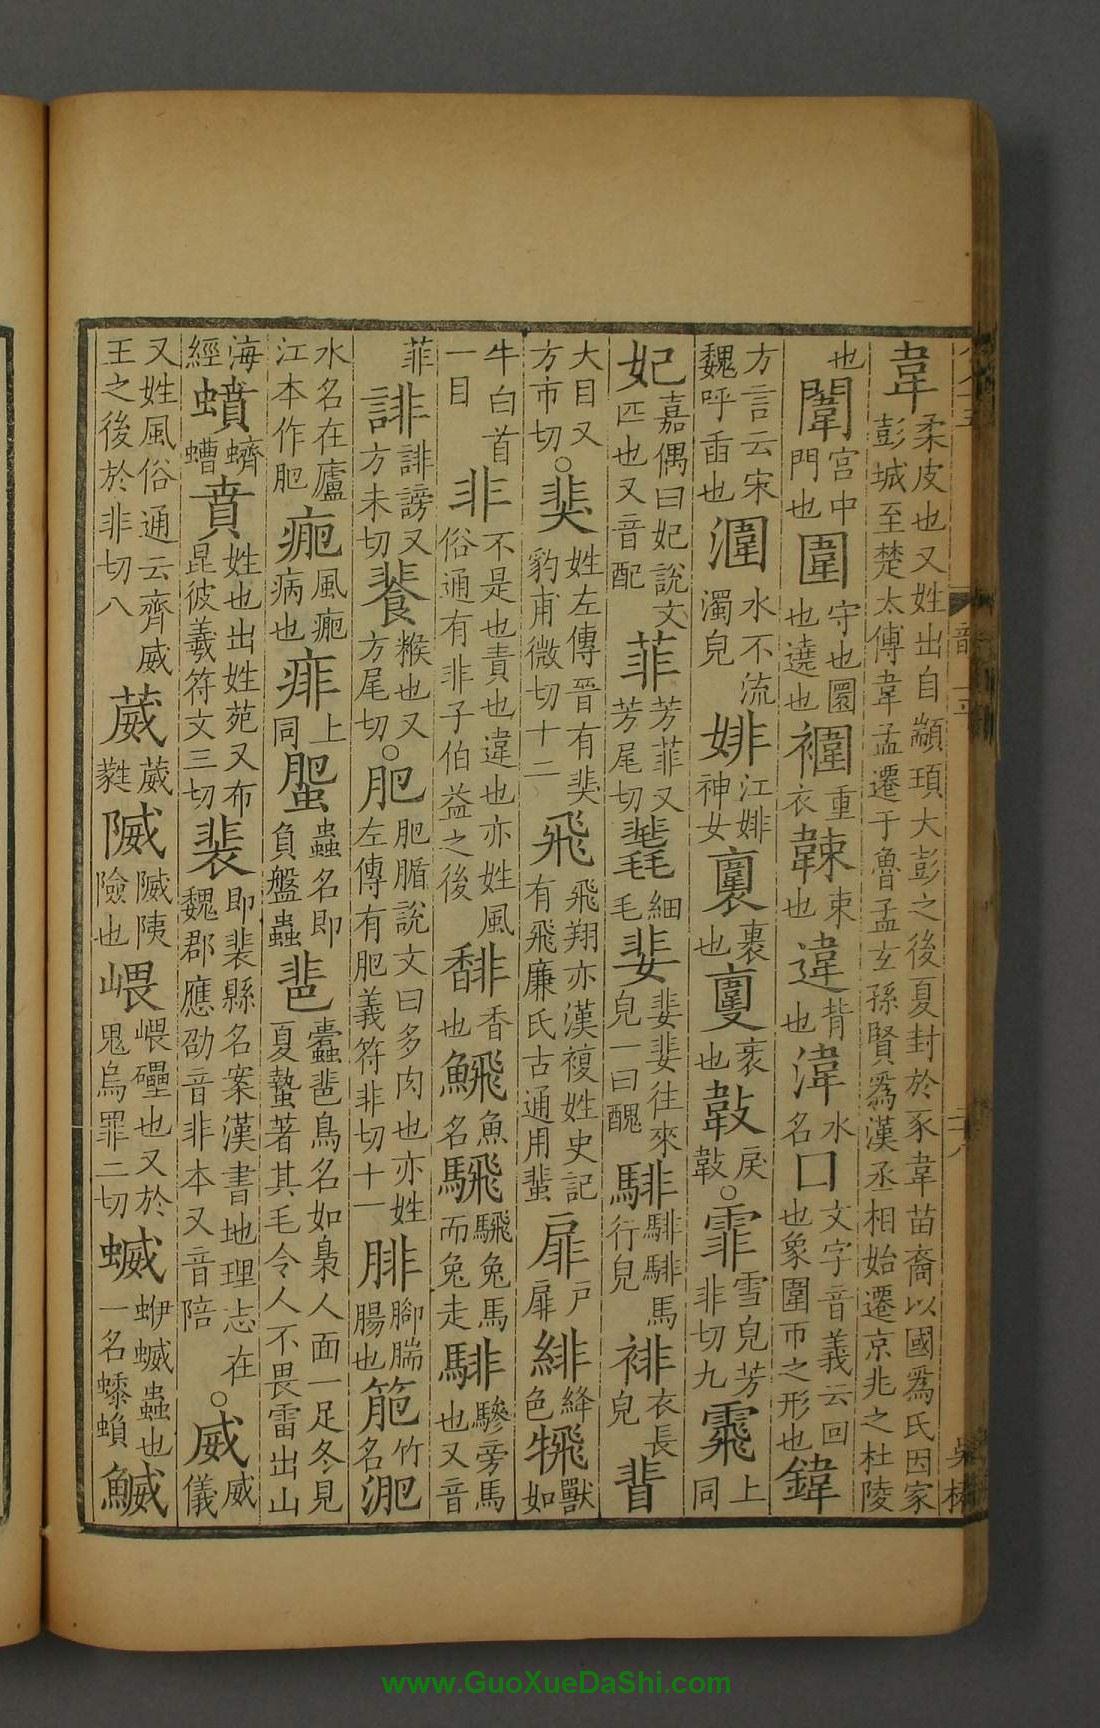 韋柔皮也又姓出自顓頊大彭之後夏封於豕韋苗裔以國爲氏因家彭城至楚太傅韋孟遷于魯孟玄孫賢爲漢丞相始遷京兆之杜陵
也闈宮中門也圍守也圜也遶也褘重衣韡束也違背也湋水名囗文字音義云回也象圍帀之形也鍏
方言云宋魏呼臿也潿水不流濁皃婔江婔神女裏也衺也戾霏雪皃芳非切九䨾上同
妃嘉偶曰妃說文匹也又音配菲芳菲又芳尾切毳細毛婓婓婓往來皃一曰醜騑騑騑馬行皃裶衣長皃
大目又方巿切○婓姓左傳晉有婓豹甫微切十二飛飛翔亦漢複姓史記有飛廉氏古通用蜚扉戶扉緋絳色獸如
牛白首一目非不是也責也違也亦姓風俗通有非子伯益之後馡香也魚名騛騛兔馬而兔走騑驂旁馬也又音
菲誹誹謗又方未切餥糇也又方尾切○肥肥腯說文曰多肉也亦姓左傳有肥義符非切十一腓腳腨腸也竹名淝
水名在廬江本作肥風病也痱上同蟲名即負盤蟲䨽鳥名如梟人面一足冬見夏蟄著其毛令人不畏雷出山
海經蟦蠐螬賁姓也出姓苑又布昆彼義符文三切裴即裴縣名案漢書地理志在魏郡應劭音非本又音陪○威威儀
又姓風俗通云齊威王之後於非切八葳葳蕤隇隇陝險也崴崴㠥也又於鬼烏罪二切蝛蛜蝛蟲也一名蟋䗊鰄
www.GuoXueDaShi.com